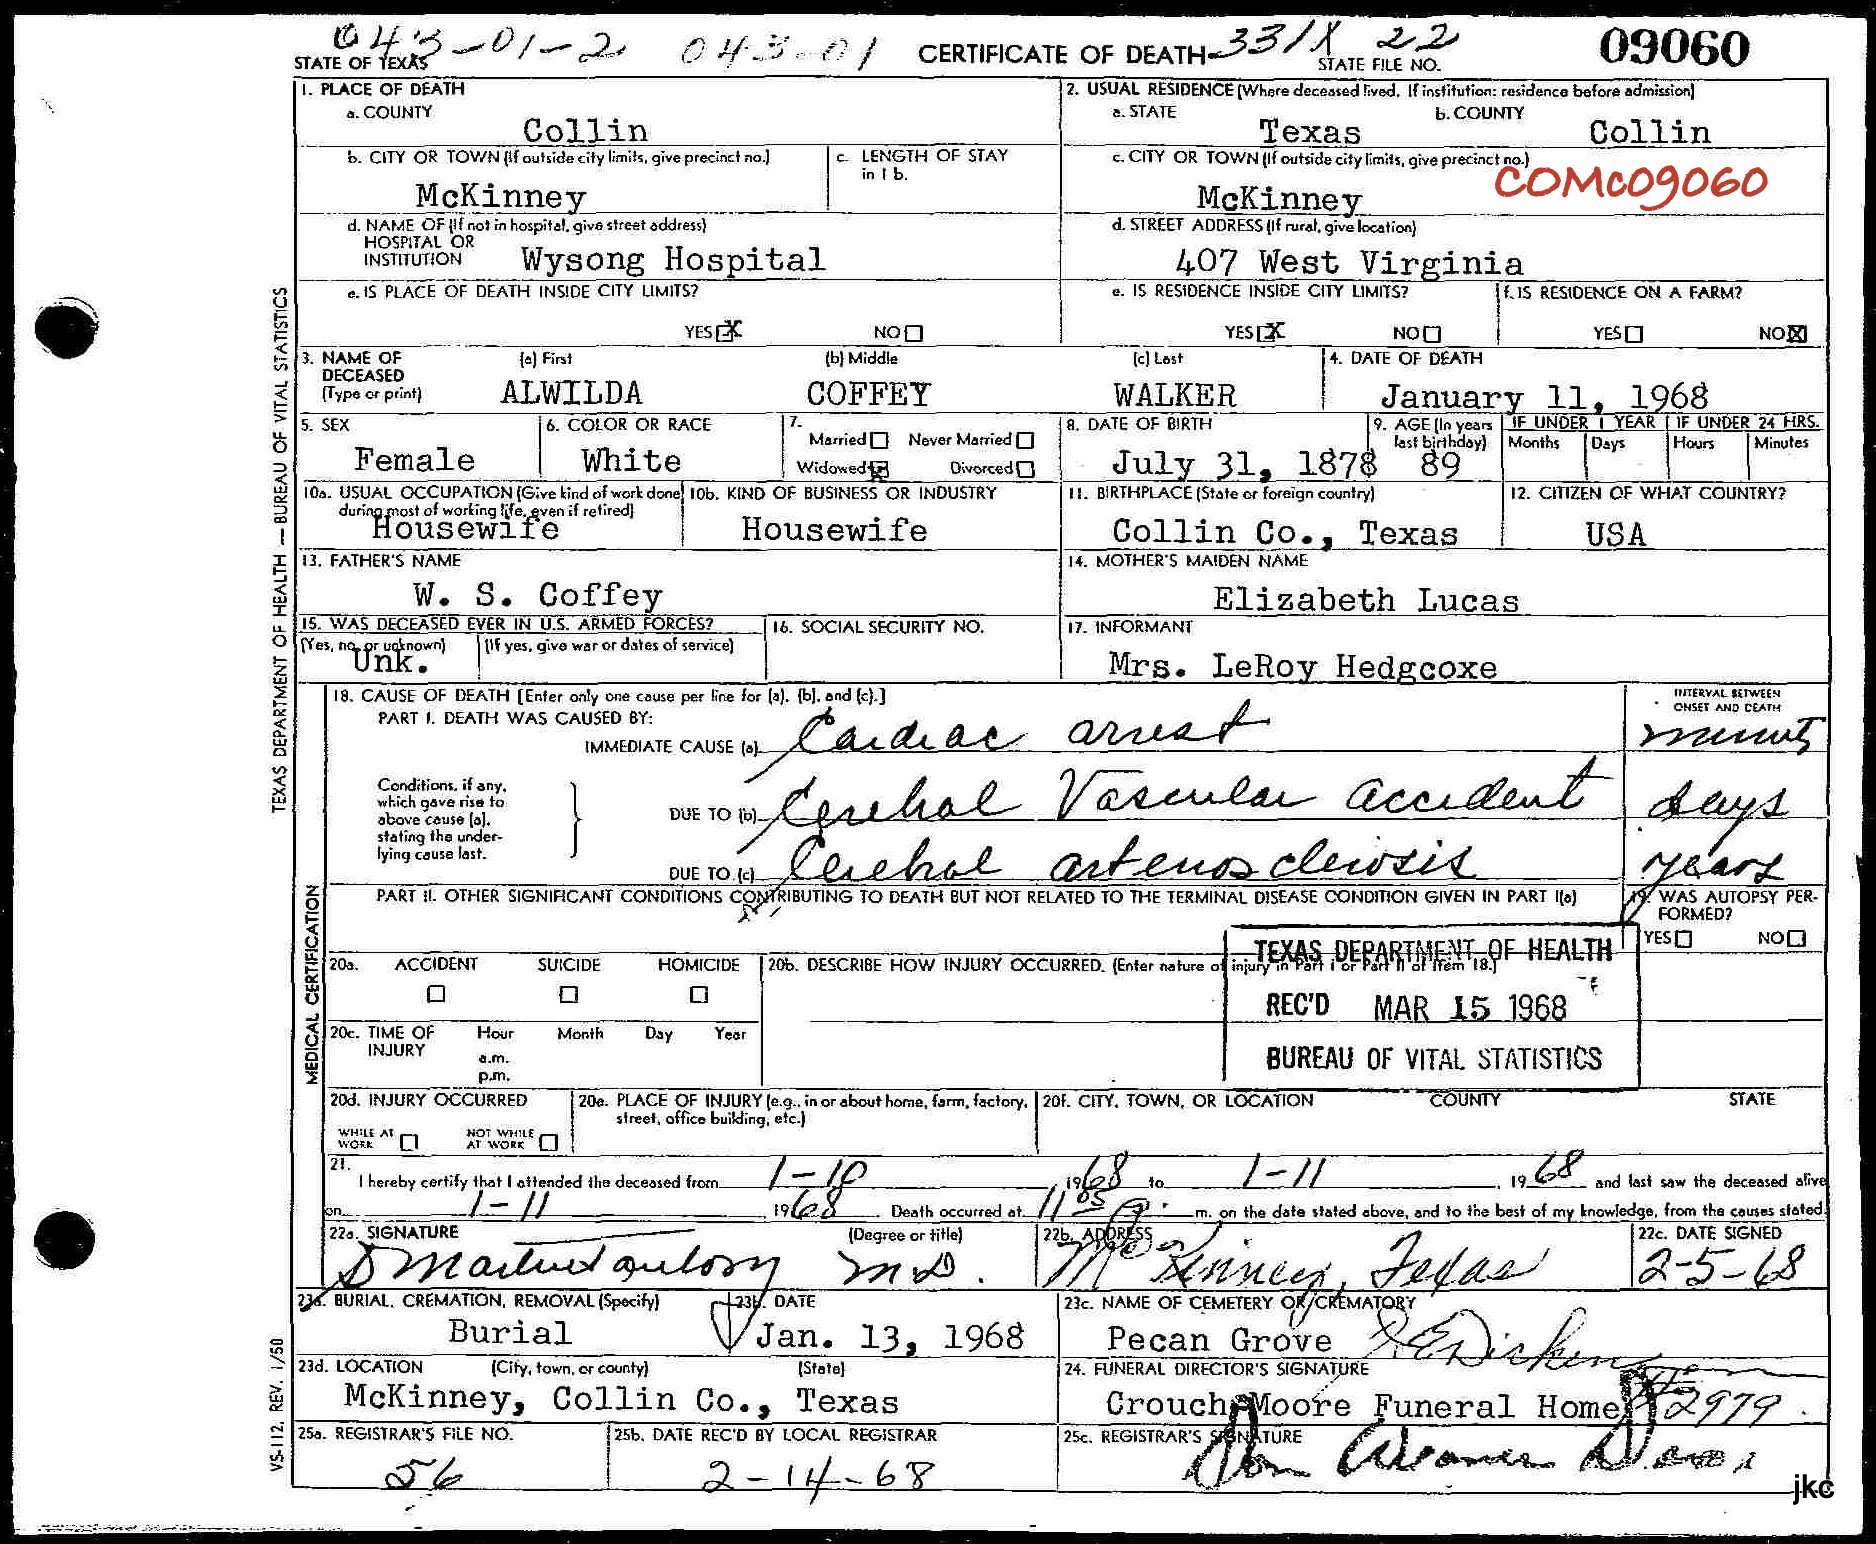 043-01-2 043-01 CERTIFICATE OF DEATH 331X 22 09060
STATE OF TEXAS STATE FILE NO.
1. PLACE OF DEATH
a. COUNTY
Collin
2. USUAL RESIDENCE (Where deceased lived. If institution: residence before admission)
a. STATE b. COUNTY
Texas Collin
b. CITY OR TOWN (If outside city limits, give precinct no.)
McKinney
c. LENGTH OF STAY
in 1 b.
c. CITY OR TOWN (If outside city limits, give precinct no.)
McKinney
COMC09060
d. NAME OF (If not in hospital, give street address)
HOSPITAL OR
INSTITUTION Wysong Hospital
d. STREET ADDRESS (If rural, give location)
407 West Virginia
e. IS PLACE OF DEATH INSIDE CITY LIMITS?
YES X NO
e. IS RESIDENCE INSIDE CITY LIMITS?
YES X NO
f. IS RESIDENCE ON A FARM?
YES NO X
3. NAME OF
DECEASED
(Type or print)
(a) First (b) Middle (c) Last
ALWILDA COFFEY WALKER
4. DATE OF DEATH
January 11, 1968
5. SEX
Female
6. COLOR OR RACE
White
7.
Married Never Married
Widowed X Divorced
8. DATE OF BIRTH
July 31, 1878
9. AGE (In years
last birthday)
89
IF UNDER 1 YEAR
Months Days
IF UNDER 24 HRS.
Hours Minutes
10a. USUAL OCCUPATION (Give kind of work done
during most of working life, even if retired)
Housewife
10b. KIND OF BUSINESS OR INDUSTRY
Housewife
11. BIRTHPLACE (State or foreign country)
Collin Co., Texas
12. CITIZEN OF WHAT COUNTRY?
USA
13. FATHER'S NAME
W. S. Coffey
14. MOTHER'S MAIDEN NAME
Elizabeth Lucas
15. WAS DECEASED EVER IN U.S. ARMED FORCES?
(Yes, no, or unknown) (If yes, give war or dates of service)
Unk.
16. SOCIAL SECURITY NO.
17. INFORMANT
Mrs. LeRoy Hedgcoxe
18. CAUSE OF DEATH [Enter only one cause per line for (a), (b), and (c).]
PART I. DEATH WAS CAUSED BY:
IMMEDIATE CAUSE (a) Cardiac arrest
INTERVAL BETWEEN
ONSET AND DEATH
minutes
Conditions, if any,
which gave rise to
above cause (a),
stating the under-
lying cause last.
DUE TO (b) Cerebral Vascular accident days
DUE TO (c) Cerebral arteriosclerosis years
PART II. OTHER SIGNIFICANT CONDITIONS CONTRIBUTING TO DEATH BUT NOT RELATED TO THE TERMINAL DISEASE CONDITION GIVEN IN PART I(a)
19. WAS AUTOPSY PER-
FORMED?
YES NO
20a. ACCIDENT SUICIDE HOMICIDE
20b. DESCRIBE HOW INJURY OCCURRED. (Enter nature of injury in Part I or Part II of Item 18.)
TEXAS DEPARTMENT OF HEALTH
REC'D MAR 15 1968
BUREAU OF VITAL STATISTICS
20c. TIME OF
INJURY
Hour Month Day Year
a.m.
p.m.
20d. INJURY OCCURRED
WHILE AT
WORK
NOT WHILE
AT WORK
20e. PLACE OF INJURY (e.g., in or about home, farm, factory,
street, office building, etc.)
20f. CITY, TOWN, OR LOCATION COUNTY STATE
21.
I hereby certify that I attended the deceased from 1-10, 1968 to 1-11, 1968 and last saw the deceased alive
on 1-11, 1968 Death occurred at 11 05 a. m. on the date stated above, and to the best of my knowledge, from the causes stated.
22a. SIGNATURE (Degree or title)
M.D.
22b. ADDRESS
McKinney, Texas
22c. DATE SIGNED
2-5-68
23a. BURIAL, CREMATION, REMOVAL (Specify)
Burial
23b. DATE
Jan. 13, 1968
23c. NAME OF CEMETERY OR CREMATORY
Pecan Grove
23d. LOCATION (City, town, or county) (State)
McKinney, Collin Co., Texas
24. FUNERAL DIRECTOR'S SIGNATURE
Crouch Moore Funeral Home 2979
25a. REGISTRAR'S FILE NO.
56
25b. DATE REC'D BY LOCAL REGISTRAR
2-14-68
25c. REGISTRAR'S SIGNATURE
jkc
TEXAS DEPARTMENT OF HEALTH — BUREAU OF VITAL STATISTICS
MEDICAL CERTIFICATION
VS-112. REV. 1/58